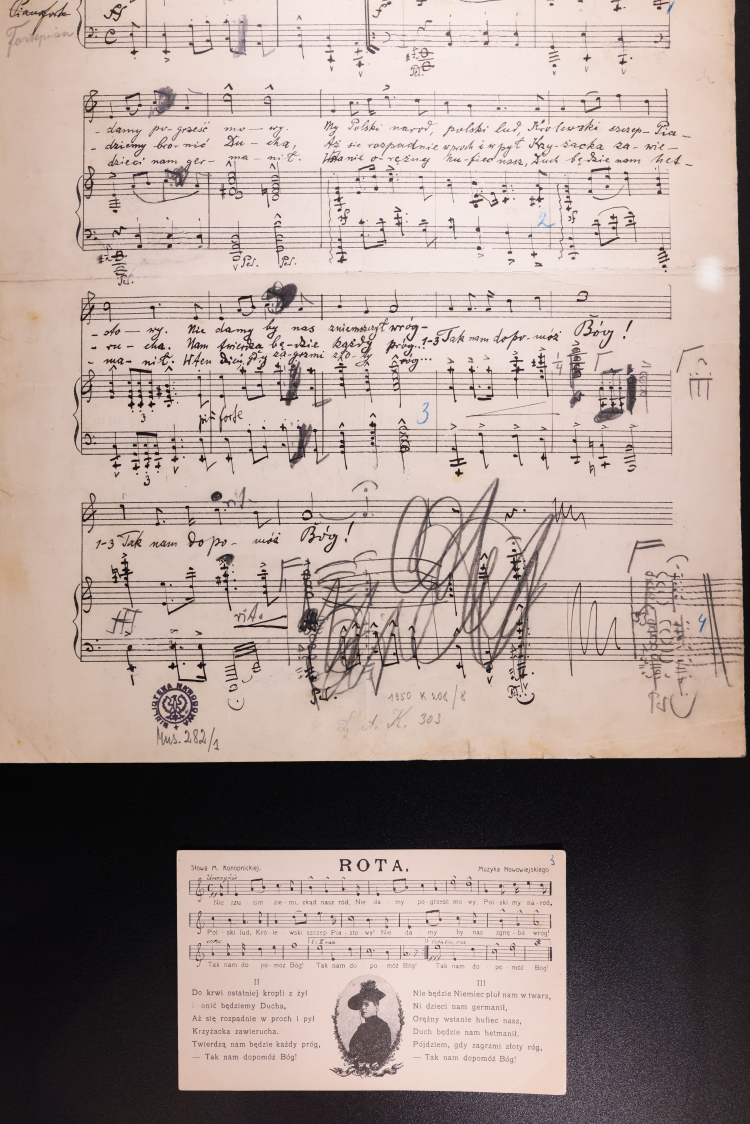 Pianoforte
Fortepian
- damy po-grześć mo - wy. My Polski naród, polski lud, Królewski szczep- Pia-
- dziemy bro-nić Du - cha, Aż się rozpadnie w proch i w pył Krzy-żacka za-wie-
dzieci nam ger- ma- nił. Stanie o-rężny hu-fiec nasz, Duch bę-dzie nam het-
Ped.
Ped.
Ped.
2
- sto - wy. Nie damy by nas zniemczył wróg-
- ru - cha. Nam twierdzą bę-dzie każdy próg... 1-3 Tak nam do po- móż Bóg!
- ma- nił. zło-ty róg...
3
più forte
3
3
rit.
1-3 Tak nam do po- móż Bóg!
rit.
4
BIBLIOTEKA NARODOWA
Mus. 282/1
1950 K 208/8
K. 303
3
Słowa M. Konopnickiej.
ROTA.
Muzyka Nowowiejskiego
Uroczyście
Nie rzu - cim zie - mi, skąd nasz ród, Nie da - my po - grześć mo - wy, Pol - ski my na - ród,
Pol - ski lud, Kró - le - wski szczep Pia - sto - wy! Nie da - my by nas zgnę - bił wróg!
Tak nam do po - móż Bóg! Tak nam do po - móż Bóg! Tak nam do po - móż Bóg!
II
Do krwi ostatniej kropli z żył
onić będziemy Ducha,
Aż się rozpadnie w proch i pył
Krzyżacka zawierucha.
Twierdzą nam będzie każdy próg,
— Tak nam dopomóż Bóg!
III
Nie będzie Niemiec pluł nam w twarz,
Ni dzieci nam germanił,
Orężny wstanie hufiec nasz,
Duch będzie nam hetmanił.
Pójdziem, gdy zagrzmi złoty róg,
— Tak nam dopomóż Bóg!